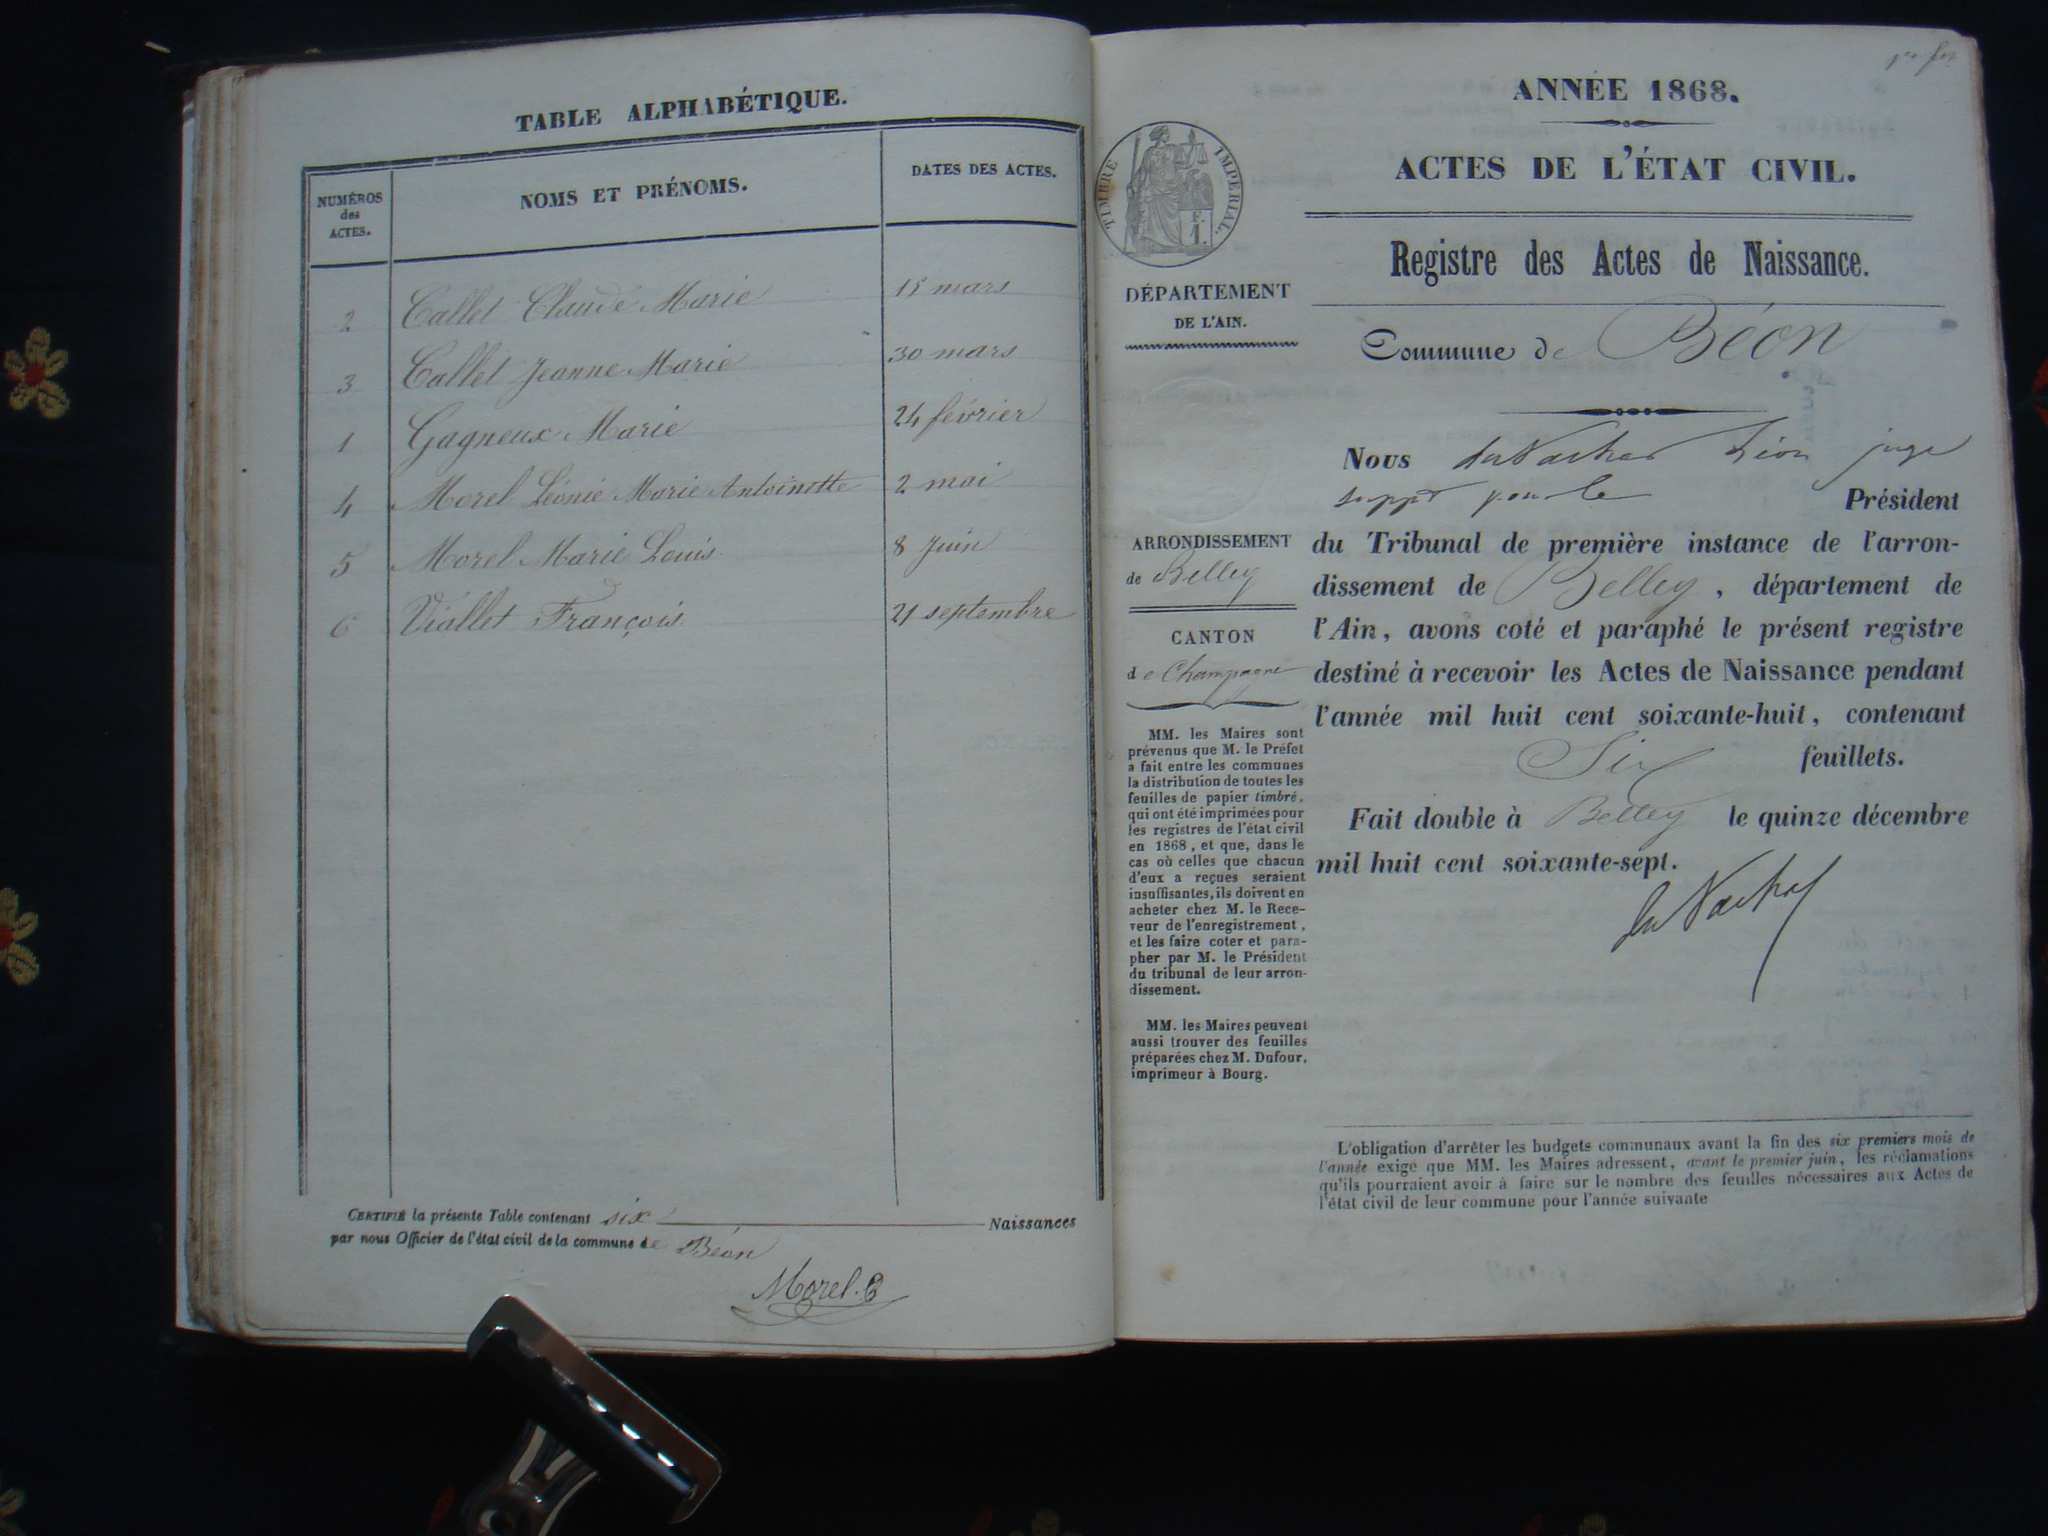 TABLE ALPHABÉTIQUE.
NUMÉROS
des
ACTES.
NOMS ET PRÉNOMS.
DATES DES ACTES.
2 Callet Claude Marie 15 mars
3 Callet Jeanne Marie 30 mars
1 Gagneux Marie 24 février
4 Morel Léonie Marie Antoinette 2 mai
5 Morel Marie Louis 8 Juin
6 Viallet François 21 septembre
CERTIFIÉ la présente Table contenant six Naissances
par nous Officier de l'état civil de la commune de Béon
Morel. C
ANNÉE 1868.
ACTES DE L'ÉTAT CIVIL.
TIMBRE IMPÉRIAL.
F.
1.
Registre des Actes de Naissance.
DÉPARTEMENT
DE L'AIN.
Commune de Béon
ARRONDISSEMENT
de Belley
CANTON
de Champagne
MM. les Maires sont
prévenus que M. le Préfet
a fait entre les communes
la distribution de toutes les
feuilles de papier timbré,
qui ont été imprimées pour
les registres de l'état civil
en 1868, et que, dans le
cas où celles que chacun
d'eux a reçues seraient
insuffisantes, ils doivent en
acheter chez M. le Rece-
veur de l'enregistrement,
et les faire coter et para-
pher par M. le Président
du tribunal de leur arron-
dissement.
MM. les Maires peuvent
aussi trouver des feuilles
préparées chez M. Dufour,
imprimeur à Bourg.
Nous Léon juge
suppt pour le Président
du Tribunal de première instance de l'arron-
dissement de Belley, département de
l'Ain, avons coté et paraphé le présent registre
destiné à recevoir les Actes de Naissance pendant
l'année mil huit cent soixante-huit, contenant
Six feuillets.
Fait double à Belley le quinze décembre
mil huit cent soixante-sept.
L'obligation d'arrêter les budgets communaux avant la fin des six premiers mois de
l'année exige que MM. les Maires adressent, avant le premier juin, les réclamations
qu'ils pourraient avoir à faire sur le nombre des feuilles nécessaires aux Actes de
l'état civil de leur commune pour l'année suivante